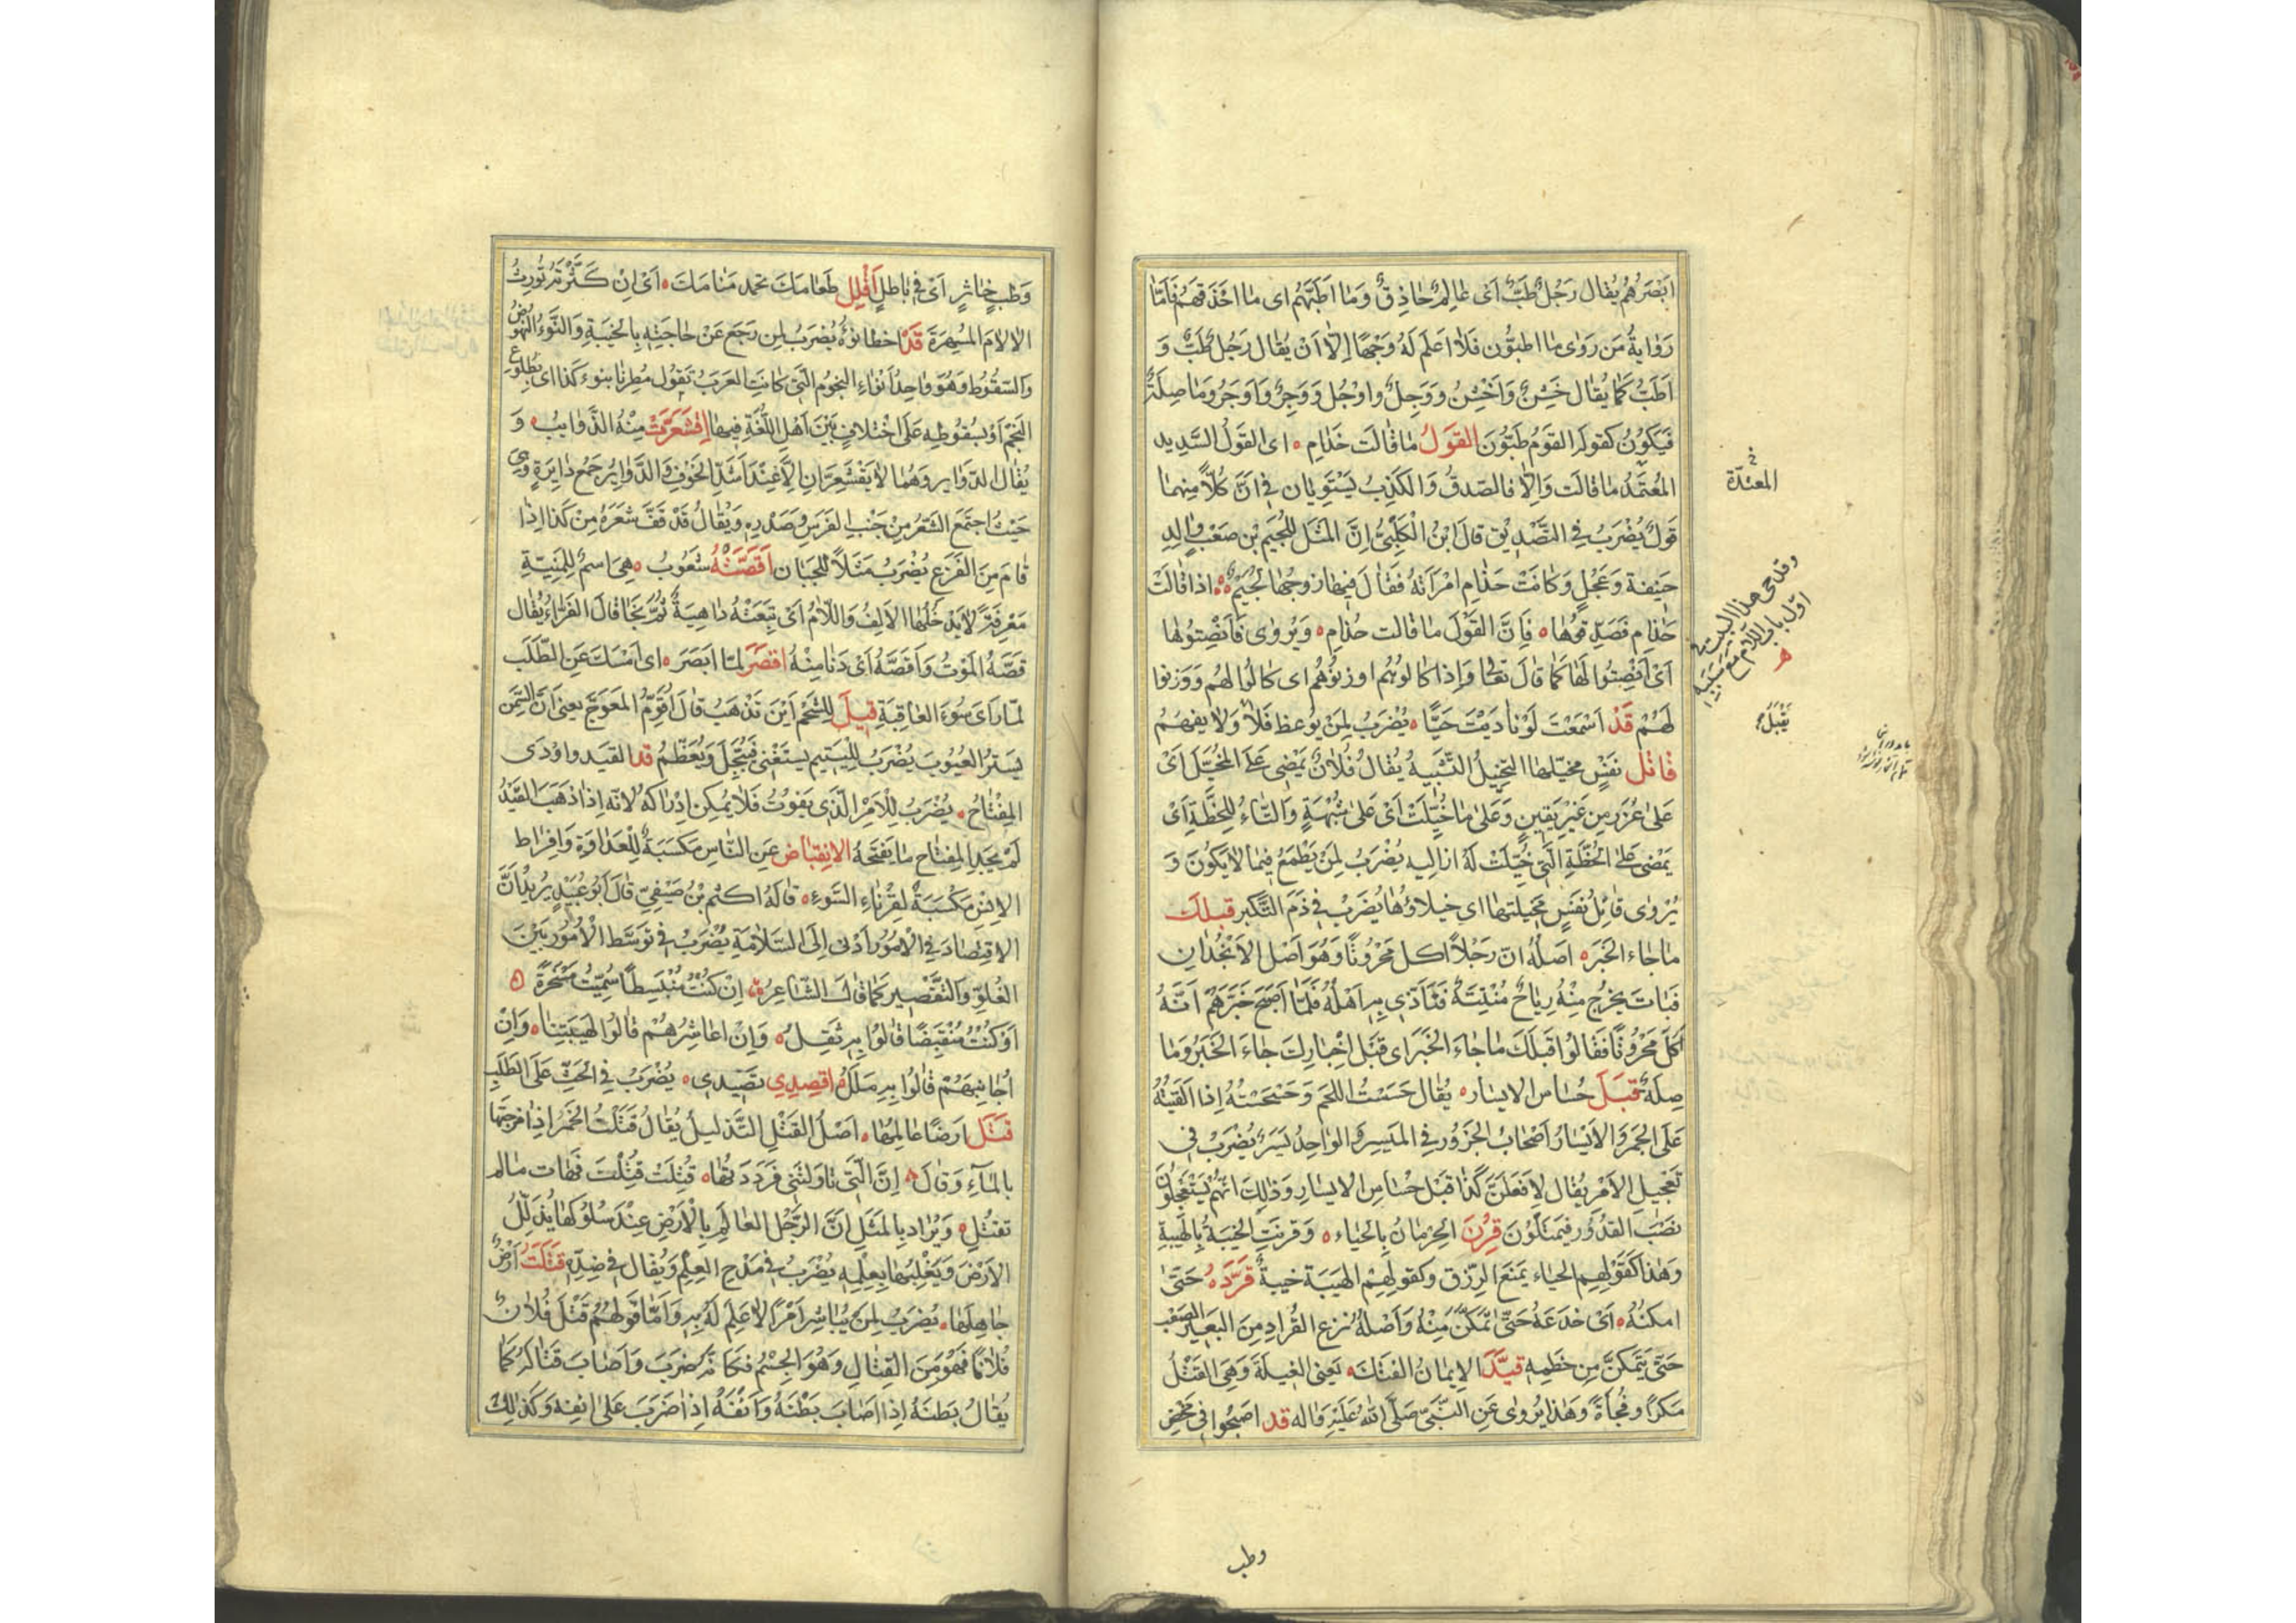 ابَصَرهُم يُقال رَجُلٌ طَبٌّ اَى عٰالِمٌ حٰاذِقٌ وَمٰا اَطَبَّهُم اى مٰا احذَقَهُم فَاَمّا
رَوٰايةُ مَن رَوٰى مٰا اطبوُّن فَلٰا اعلَم لَهُ وَجهًا اِلّا اَنْ يُقال رَجُل طَبٌّ وَ
اَطَبّ كمٰا يُقٰال خَشِنٌ وَاَخْشِنُ وَوَجِلٌ واوْجُل وَوَجِرٌ وَاَوَجَرُ وَمٰا صِلَةٌ
فَيَكوُنُ كقولَهِ القَومُ طَبّوُنَ القَولُ مٰا قٰالَت حَذٰامِ ه اى القَولُ السَّديد
المُعتَمَدُ مٰا قالَت وَاِلّا فالصّدقُ وَالكَذِبُ يَستَوِيٰان فى انَّ كُلّاً مِنهمٰا
قَولٌ يُضْرَبُ فِى التَّصْدِيقِ قالَ ابنُ الْكَلْبِىُّ اِنَّ المَثَل لِلُجَيْم بْن صَعْب وٰالِدِ
حَنيفة وَعَجْلٍ وَكٰانَتْ حَذٰامِ امْرَاتهُ فَقٰالَ فيهٰا زوجُهٰا لُجَيْمٌ ه اذا قٰالَتْ
حَذٰامِ فَصَدّقوُهٰا ه فَاِنَّ القَوْلَ مٰا قٰالت حَذٰامِ ه وَيُروٰى فَاَنْصِتوُهٰا
اَىْ اَنْصِتُوا لَهٰا كمٰا قٰالَ تعٰالى وَاِذا كٰالوُهُم او وزنوُهُم اى كٰالُوا لهُم وَوَزنوا
لَهُمْ قَدْ اَسْمَعْتَ لَوْ نٰادَيْتَ حَيًّا ه يُضْرَبُ لِمَنْ يوُعظ فَلٰا وَلٰا يفهَمُ
قٰاتل نفَسٍ مخَيّلهٰا التّخييلُ التّشبيهُ يُقٰالُ فُلٰانٌ يَمْضِى عَلَى المُخَيَّل اَىْ
عَلٰى غَرَرٍ مِن غيَرْ يَقينٍ وَعَلٰى مٰا خُيّلَتْ اَىْ عَلٰى شُبْهَةٍ وَالتّٰاءُ لِلخِطَّةِ اَىْ
يَمْضى عَلى الخُطَّةِ الَّتى خُيّلَتْ لَهُ اَنّٰا اليه يُضْرَبُ لِمَن يَطمَعُ فيمٰا لٰا يَكوُنَ وَ
يُروٰى قٰاتِلُ نَفسٍ مَخيلتهٰا اى خيلاؤُهٰا يُضرَبُ فى ذَمّ التّكَبر قبلك
مٰا جٰاءَ الخبَر ه اصَلُهُ انّ رَجُلاً اكل مَحْروُتًا وَهُوَ اصَل الاَنْجُذٰانِ
فَبٰات يَخرُج مِنْهُ رِيٰاحٌ مُنْتِنَةٌ فَتَاَذّى بِهِ اَهْلُهُ فَلمّٰا اَصْبَحَ خَبَّرَهُمْ اَنَّهُ
اَكلَ مَحْروُتًا فقَالُوا قبَلَكَ مٰا جٰاءَ الخَبَر اى قبَل اِخبٰارِكَ جٰاءَ الخَبرَ وُمٰا
صِلَةٌ قَبْلَ حُسٰاسِ الايسٰار ه يُقٰال حَسَسْتُ اللحَم وَحَسْحَسْتُهُ اِذا اَلقَيتُهُ
عَلَى الجَمرِ وَالاَيسٰارُ اَصْحٰابُ الجَزوُر فى المَيسِر وَالوٰاحِدُ يَسَرٌ يُضْرَبُ فى
تَعْجيلِ الاَمْرِ يُقال لِاَفعَلَنَّ كذٰا قَبْل حُسٰاسِ الايسٰار وَذٰلِكَ انَهُم يَسْتَعجِلوُنَ
نصَبَ القدُوُر فيَمتَلّوُنَ قُرِنَ الحِرمٰانُ بِالحَيٰاء ه وَقرِنَتِ الخيَبَةُ بِالهَيبةِ
وَهٰذا كقَولِهِم الحيٰاء يَمنَعُ الرِّزق وكقولِهِمْ الهَيَبة خيبةٌ قَرَّدَهُ حَتّٰى
امكنَهُ ه اَىْ خدَعَهُ حَتّٰى تَمكّنَ مِنْهُ وَاَصْلهُ نَزع القُرادِ مِنَ البَعير الصَّعْب
حَتّى يَتَمكنَّ مِن خَطمِه قيَّدَ الايمٰانُ الفتكَ ه يَعنى الغيلةَ وَهِىَ القَتْلُ
مَكرًا وفُجأةً وَهٰذا يُروٰى عَنِ النَّبىّ صَلَّى اللهُ عَلَيْهِ وَاله قد اصبَحُوا فى مَخضِ
وطب
فى المعتدّة
وقد جى هذا البيت فى
اوّل باب اللام مع سببه
يَقْبَلُ
وَطبٍ خٰاثرٍ اَى فى بٰاطلٍ اَقْلِل طَعٰامَكَ تحمد مَنٰامَكَ ه اَىْ اِنْ كَثْرَتَه تُورِثُ
الاٰلاٰمَ المُسْهِرَةَ قَدْ اخطٰا نَوْءُهُ يُضرَبُ لِمن رَجَعَ عَنْ حٰاجَتِهِ بِالخيبَةِ وَالنَّوْءُ النّهوُض
وَالسّقُوُط وَهُوَ وٰاحِدُ اَنْواءِ النجوُم الَّتى كٰانَتِ العَرَبُ تَقوُل مُطِرنٰا بنوء كَذا اى بِطُلوُع
النَّجْم اَوْ بسُقوُطِهِ عَلَى اخْتلافٍ بَيْنَ اَهْلِ اللُّغَةِ فيهٰا اِقشَعَرَّتْ مِنْهُ الذّوٰايب ه وَ
يُقال الدّوٰاير وَهُمٰا لٰا يَقْشَعِرَّانِ اِلّا عِنْدَ اَشَدّ الخوْفِ وَالدَّوٰايرُ جَمْع دٰايِرَةٍ وَهى
حَيْثُ اجتَمَعَ الشَّعْرُ مِنْ جَنْب الفَرَسِ وَصَدْرِهِ وَيُقٰالُ قَدْ قَفّ شَعَرهُ مِنْ كَذٰا اِذٰا
قٰامَ مِنَ الفَزَعِ يُضْرَبُ مَثَلاً للِجَبٰانِ اَقَصَّتْهُ شَعُوُب ه هِىَ اسمٌ لِلمَنِيّةِ
مَعْرِفَةً لٰا يَدْخُلُهٰا الاَلِفُ وَاللّاٰمُ اَىْ تَبِعَتْهُ دٰاهِيَةٌ ثُمَّ نَجٰا قالَ الفَرّاءُ يُقٰال
قَصَّهُ المَوْتُ وَاَقَصَّهُ اَىْ دَنٰا مِنْهُ اقصَرَ لمّٰا ابَصَرَ ه اى اَمْسَكَ عَنِ الطّلَب
لمّٰا رَاى سُوءَ العٰاقِبَةِ قيلَ لِلشَّحْمِ اَيْنَ تَذْهَبُ قٰالَ اُقَوِّمُ المُعَوَجَّ يعنى اَنّ السّمَن
يَستُر العُيُوُبَ يُضْرَبُ للِئَيم يسَتغْنى فَيُبَجَّل وَيُعَظَّمُ قد القيَد واوُدَى
المِفْتٰاحُ ه يُضْرَبُ لِلاَمْرِ الَّذى يَفوُتُ فَلٰا يُمكِن اِدْرٰاكهُ لانّه اِذا ذَهَبَ القَيْدُ
لَمْ يَجِدِ المِفتٰاح مٰا يَفتحَهُ الاِنقِبٰاض عَنِ النّاسِ مَكسَبَةٌ لِلعَدٰاوَةِ وَاِفرٰاط
الاُنسِ مَكسَبَةٌ لقُرَنٰاءِ السَّوءِ ه قٰالَهُ اكثَم بْنُ صَيْفىٍّ قٰالَ اَبُو عُبَيْدٍ يُريدُ اَنَّ
الاِقتِصٰادَ فى الاُموُرِ اَدْنى اِلَى السَّلاٰمَةِ يُضْرَبُ فى توَسّط الاُموُر بَيْنَ
الغُلوّ وَالتَّقْصِير كمٰا قٰالَ الشّٰاعِر ه اِنْ كُنْتُ مُنْبَسِطًا سُمّيتُ مَسْخَرَةً ه
اَوْ كُنْتُ مُنْقَبِضًا قٰالُوا بِهِ ثقَلُ ه وَاِنْ اعٰاشِرهُمْ قٰالُوا لِهَيبَتِنا ه وَاِنْ
اجُانِبهُمْ قٰالُوا بِهِ مَلَلُ اقصِدى تَصيدى ه يُضْرَبُ فى الحَثّ عَلَى الطّلَبِ
قتَلَ اَرضًا عٰالِمُهٰا ه اصَلُ القَتْلِ التّذليلُ يُقٰالُ قَتَلتُ الخَمرَ اِذٰا مزجَتها
بالمٰآءِ وَقٰالَ ه اِنَّ الَّتى نٰاوَلتَنى فَرَددَتهٰا ه قُتِلَتْ قُتِلْتَ فهٰات مٰا لم
تقتُلِ ه وَيُرٰاد بِالمَثَلِ اَنَّ الرَّجُل العٰالِمَ بِالاَرْضِ عِنْدَ سُلوُكِهٰا يُذَلّلُ
الاَرْضَ وَيَغْلِبُهٰا بِعِلْمِهِ يُضْرَبُ فى مَدْح العِلْمِ وَيُقال فى ضِدِّهِ قَتَلَتْ اَرْضٌ
جٰاهِلَهٰا ه يُضرَبُ لِمَنْ يُبٰاشِرُ اَمْرًا لٰا عِلمَ لَهُ بِهِ وَاَمّٰا قَولُهُمْ قَتَلَ فُلاٰنٌ
فُلاٰنًا فَهُوَ مِنَ القِتٰالِ وَهُوَ الجِسْمُ فكَانّهُ ضرَبَ وَاَصٰابَ قَتٰالَهُ كمٰا
يُقٰالُ بَطنَهُ اِذٰا اصَابَ بَطْنَهُ وَاَنَفهُ اِذٰا ضَرَبَ عَلٰى انفِه وَكَذٰلِكَ